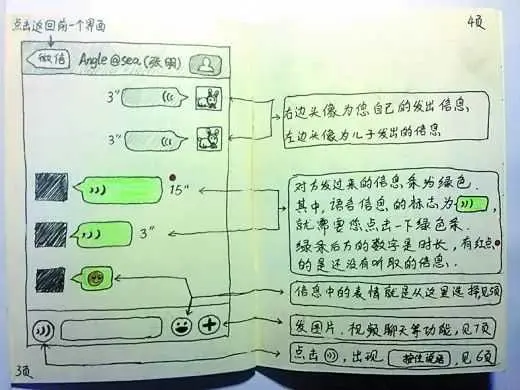 点击返回前一个界面
4页
微信
Angle@sea(张明)
3"
3"
右边头像为您自己的发出信息
左边头像为儿子发出的信息
15"
3"
对方发过来的信息条为绿色.
其中,语音信息的标志为
就需要您点击一下绿色条.
绿条后方的数字是时长,有红点
的是还没有听取的信息.
信息中的表情就是从这里选择见5页
发图片、视频聊天等功能,见7页
点击 ,出现 按住说话 ,见6页
3页